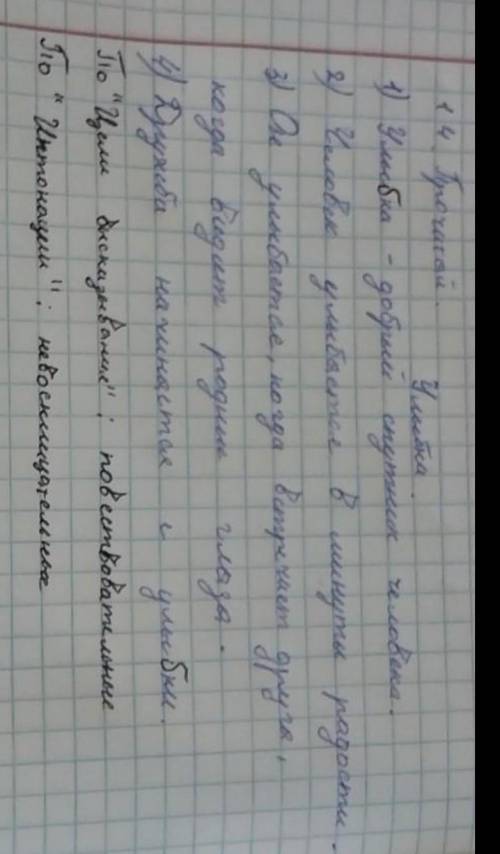 14. Прочитай.
Улыбка
1) Улыбка - добрый спутник человека.
2) Человек улыбается в минуты радости.
3) Он улыбается, когда встречает друга,
когда видит родные глаза.
4) Дружба начинается с улыбки.
По "Цели высказывание": повествовательные
По "Интонации": невосклицательные